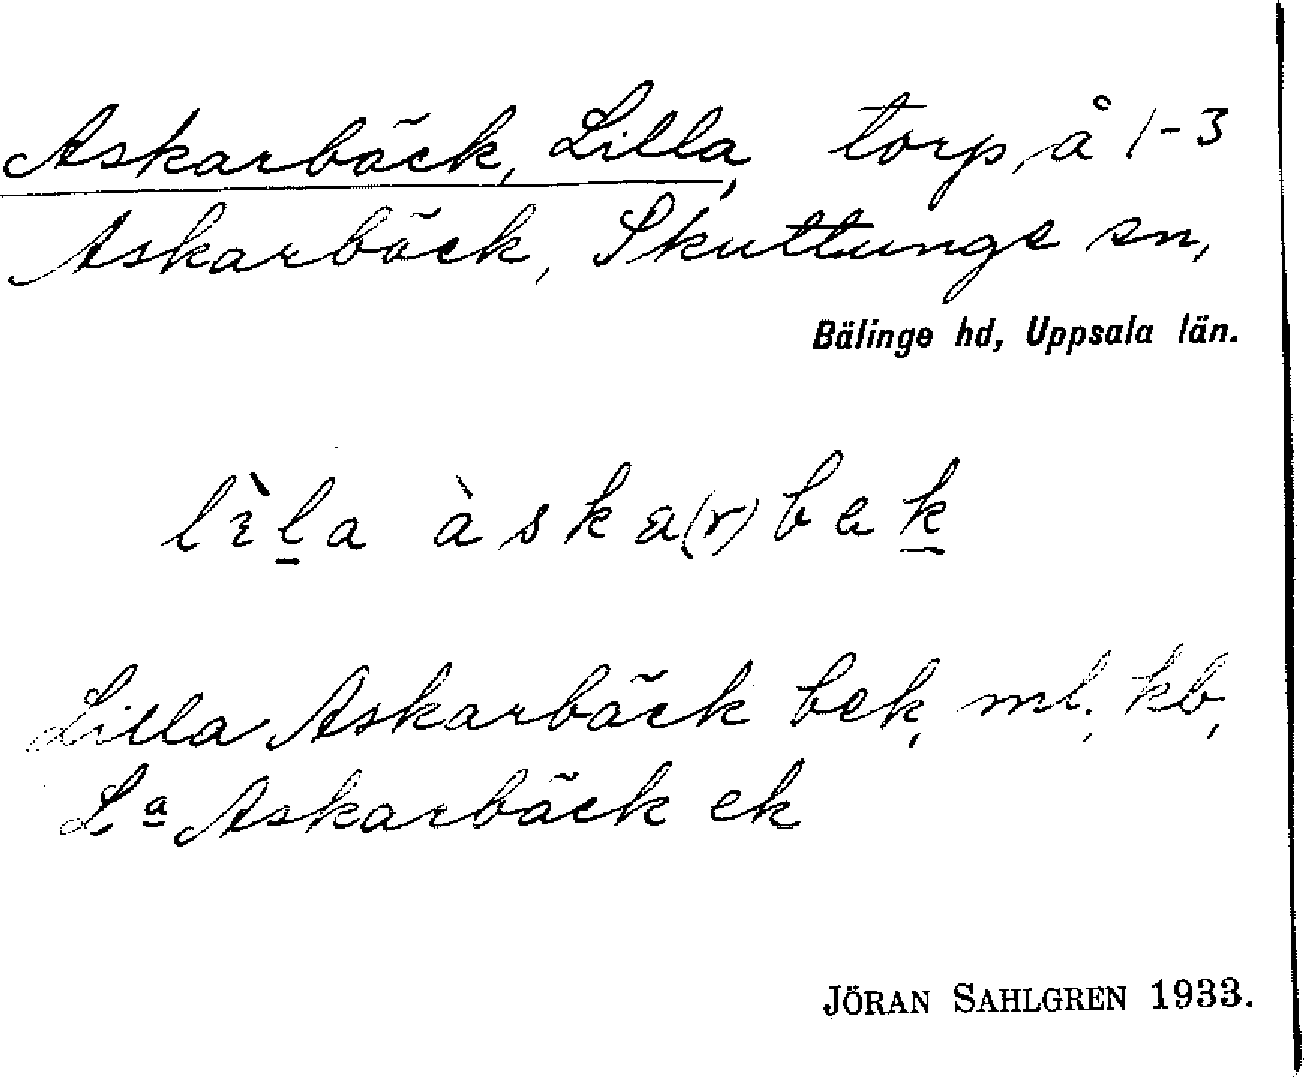 Askarbäck, Lilla, torp, å 1-3
Askarbäck, Skuttunge sn,
Bälinge hd, Uppsala län.
lìla àska(r)bek
Lilla Askarbäck bek, ml, kb,
Lª Askarbäck ek
JÖRAN SAHLGREN 1933.